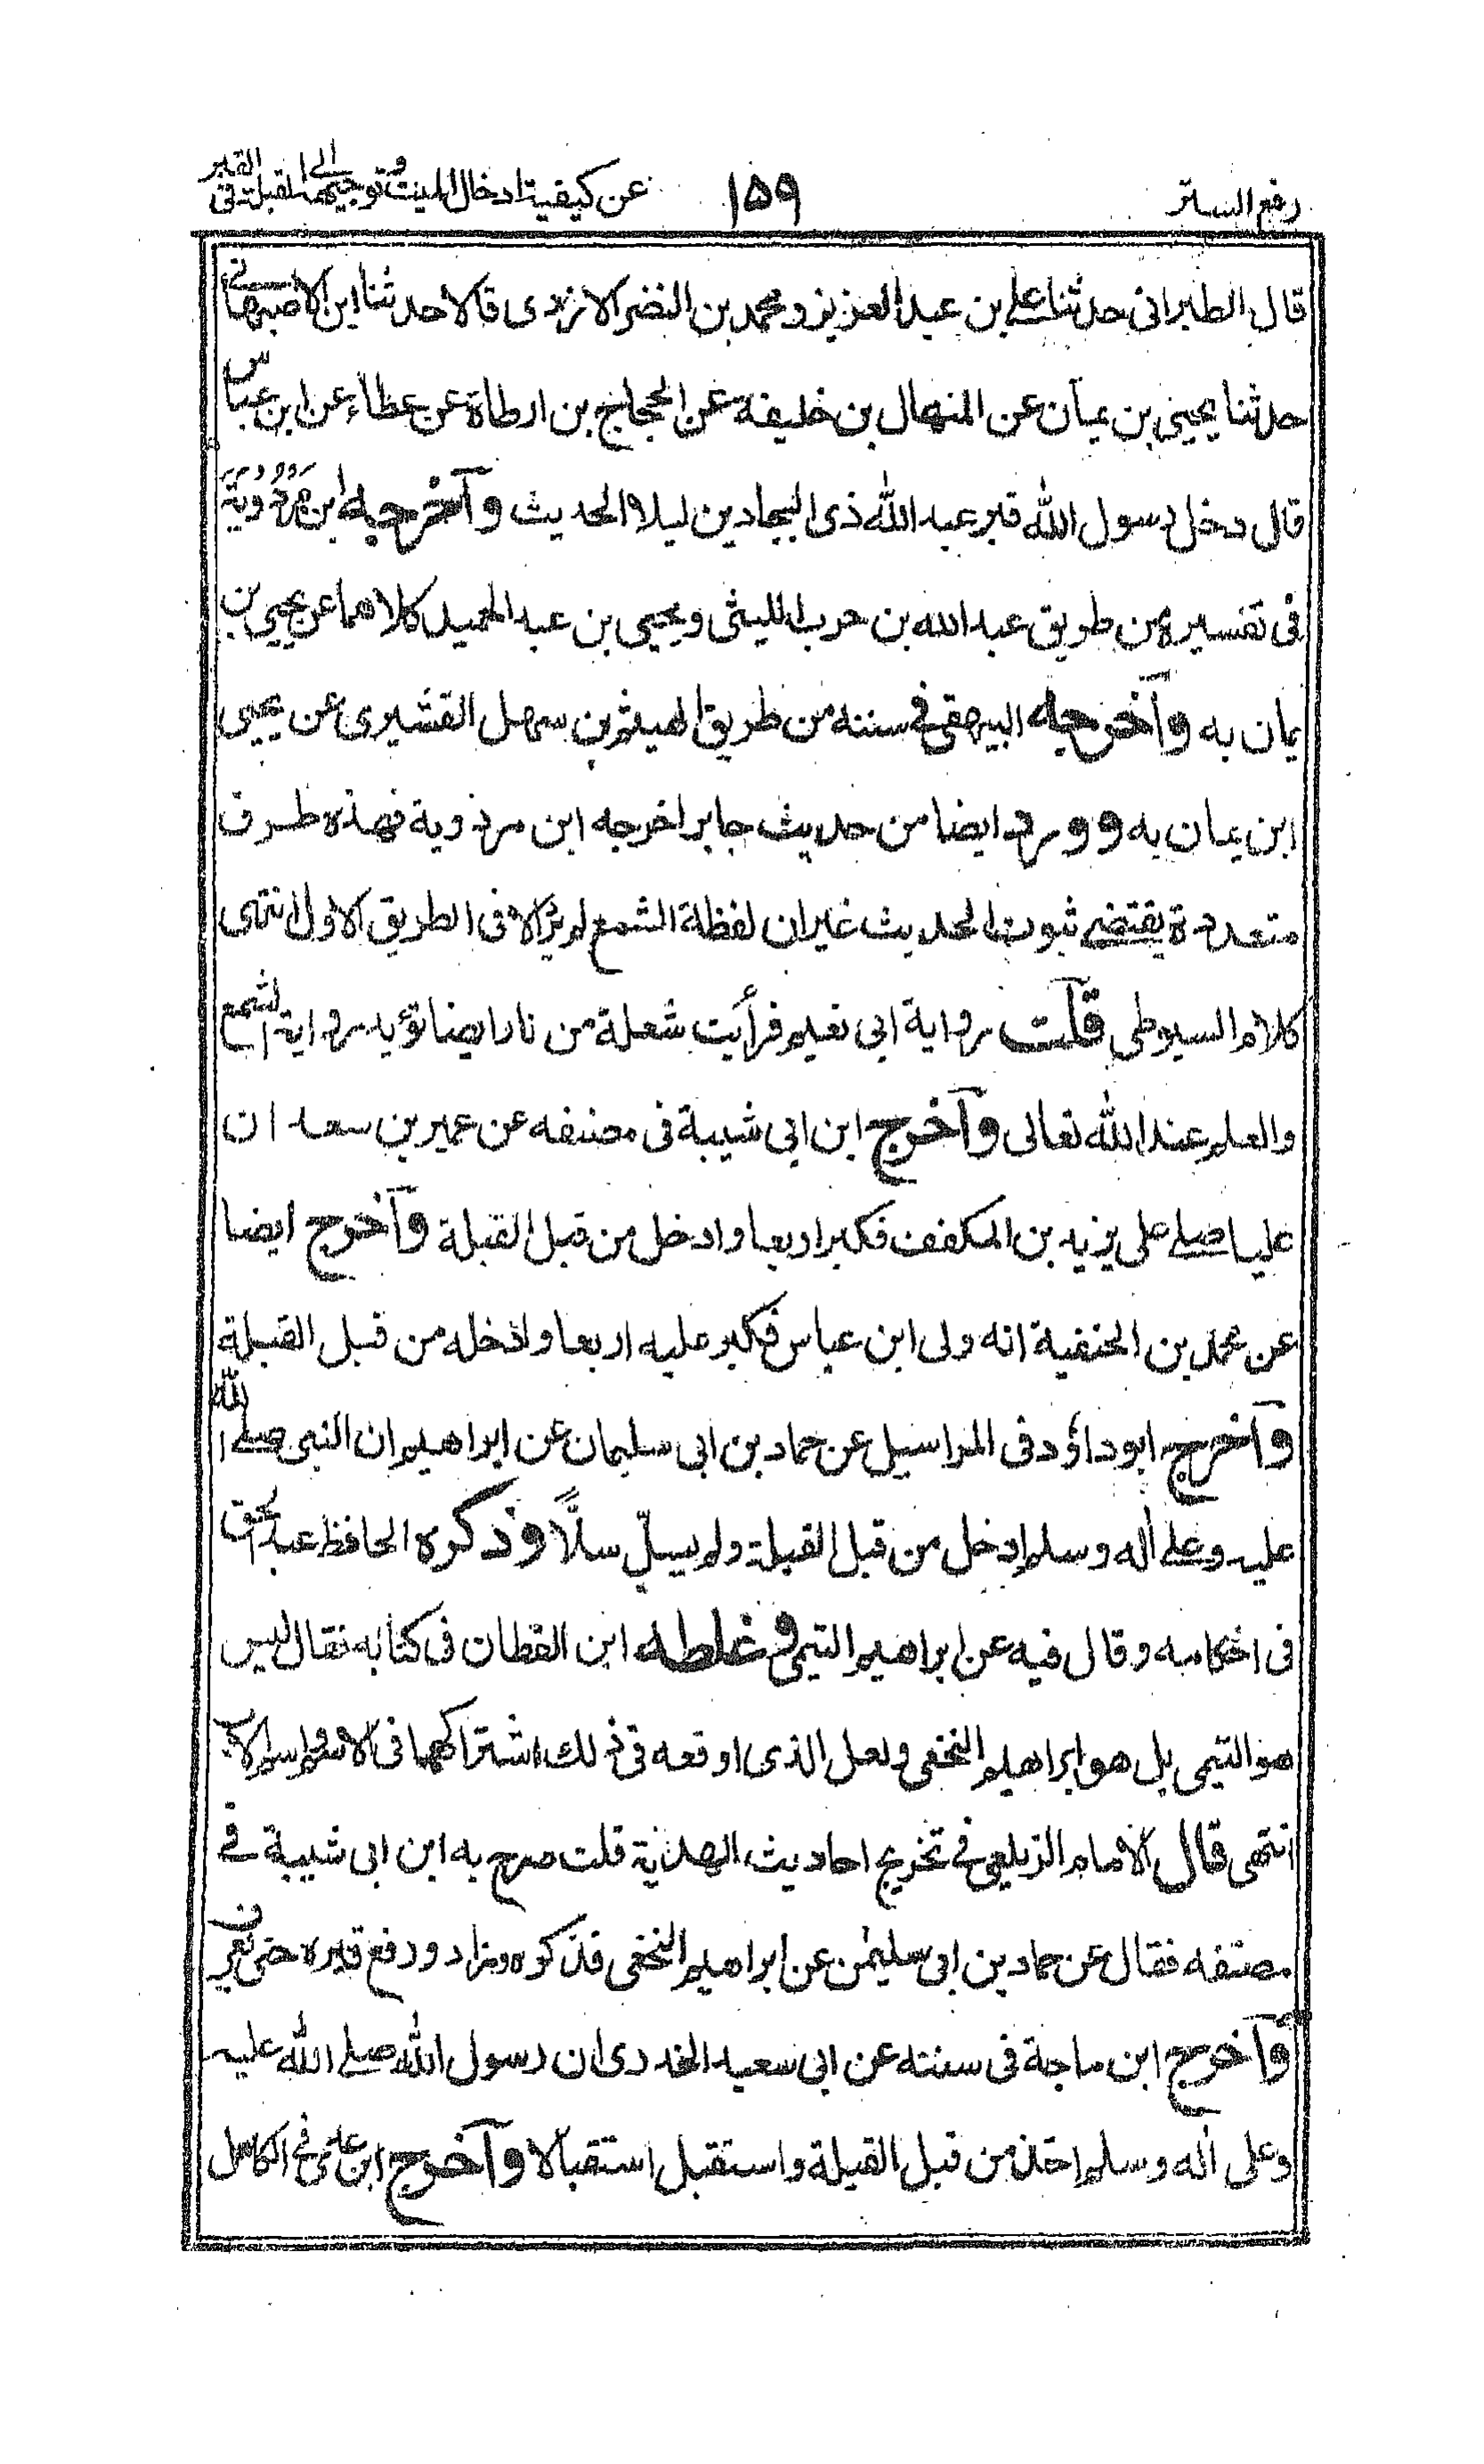 رفع الستر
١٥٩
عن كيفية ادخال الميت وتوجيهه الى القبلة فى القبر
قال الطبرانى حدثنا على بن عبد العزيز ومحمد بن النضر الازدى قالا حدثنا ابن الاصبهانى
حدثنا يحيى بن يمان عن المنهال بن خليفة عن الحجاج بن ارطاة عن عطاء عن ابن عباس
قال دخل رسول الله قبر عبد الله ذى البجادين ليلا الحديث وأخرجه ابن مردوية
فى تفسيره من طريق عبد الله بن حرب الليثى ويحيى بن عبد الحميد كلاهما عن يحيى بن
يمان به وأخرجه البيهقى فى سننه من طريق الهيثم بن سهل القشيرى عن يحيى
ابن يمان به وورد ايضا من حديث جابر اخرجه ابن مردوية فهذه طرق
متعددة يقتضى ثبوت الحديث غير ان لفظة الشمع لم تر الا فى الطريق الاول انتهى
كلام السيوطى قلت رواية ابى نعيم فرأيت شعلة من نار ايضا تؤيد رواية الشمع
والعلم عند الله تعالى وأخرج ابن ابى شيبة فى مصنفه عن عمير بن سعد ان
عليا صلى على يزيد بن المكفف فكبر اربعا وادخل من قبل القبلة وأخرج ايضا
عن محمد بن الحنفية انه ولى ابن عباس فكبر عليه اربعا وادخله من قبل القبلة
وأخرج ابو داؤد فى المراسيل عن حماد بن ابى سليمان عن ابراهيم ان النبى صلى الله
عليه وعلى أله وسلم ادخل من قبل القبلة ولم يسلّ سلًّا وذكره الحافظ عبد الحق
فى احكامه وقال فيه عن ابراهيم التيمى وغلطه ابن القطان فى كتابه فقال ليس
هو التيمى بل هو ابراهيم النخعى ولعل الذى اوقعه فى ذلك اشتراكهما فى الاسم واسم الاب
انتهى قال الامام الزيلعى فى تخريج احاديث الهداية قلت صرح به ابن ابى شيبة فى
مصنفه فقال عن حماد بن ابى سليمٰن عن ابراهيم النخعى فذكره وزاد ورفع قبره حتى يعرف
وأخرج ابن ماجة فى سننه عن ابى سعيد الخدرى ان رسول الله صلى الله عليه
وعلى أله وسلم اخذ من قبل القبلة واستقبل استقبالا وأخرج ابن عدى فى الكامل